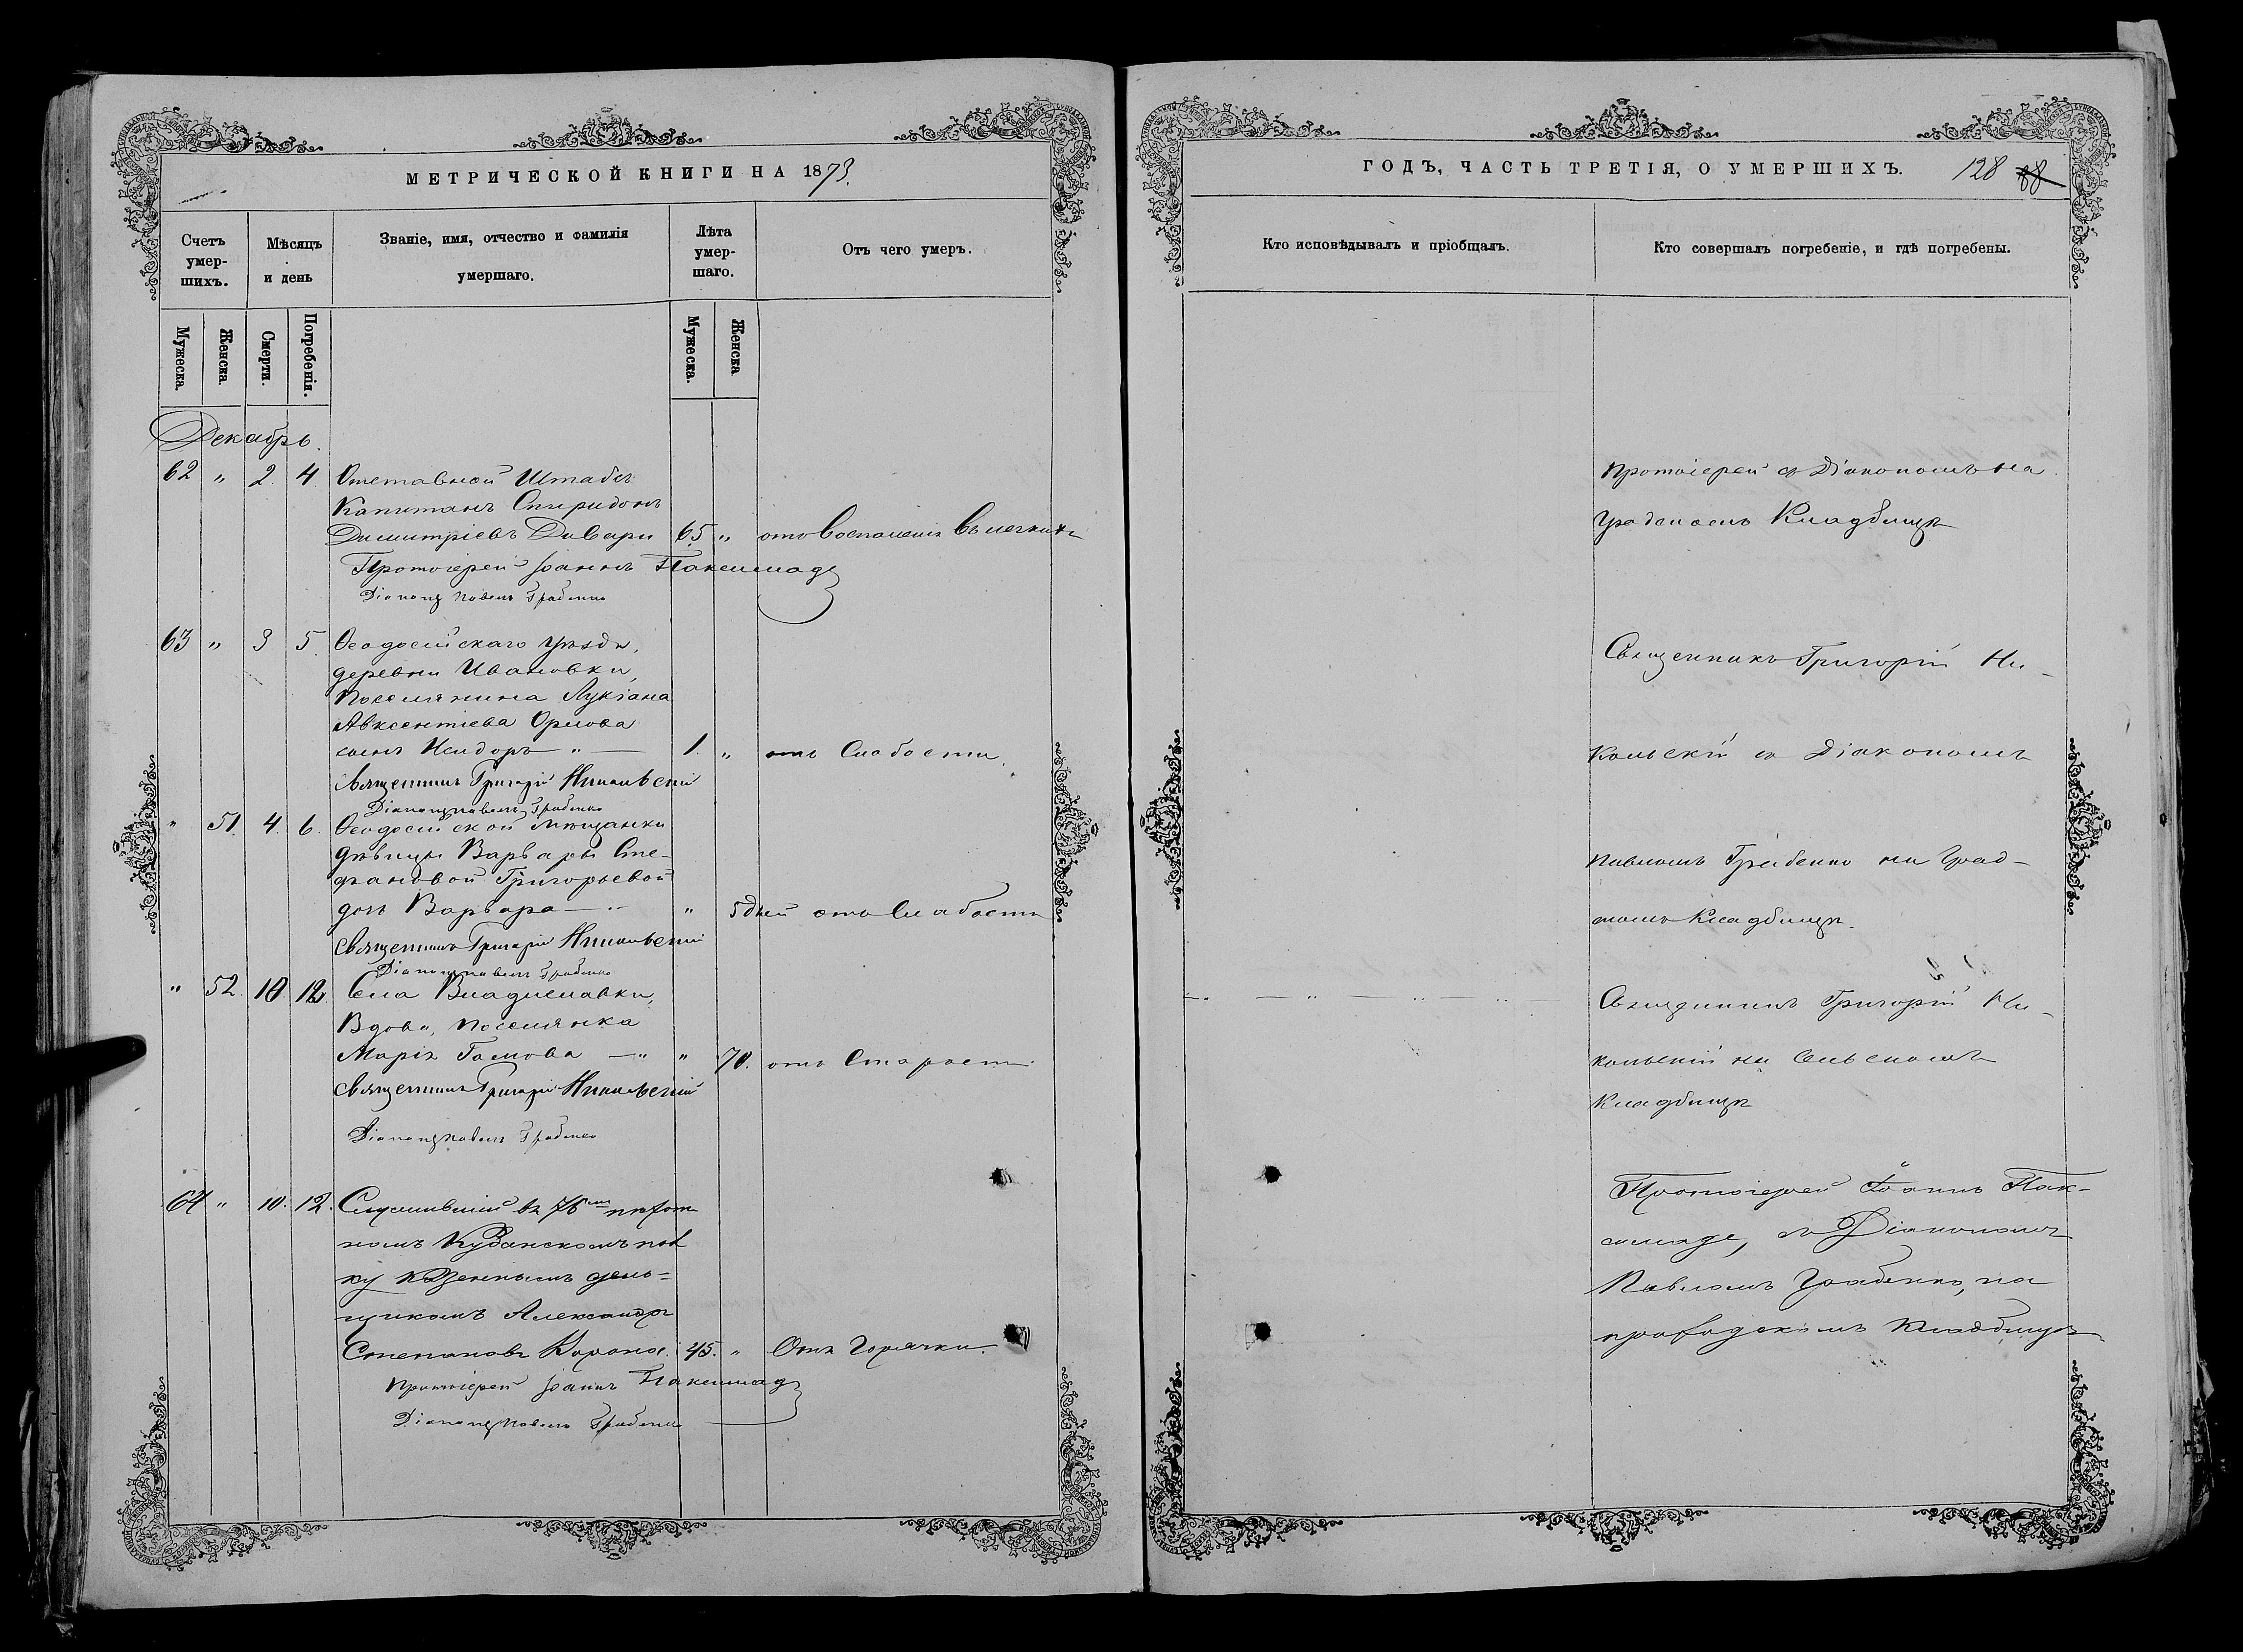 МЕТРИЧЕСКОЙ КНИГИ НА 1873.
Счетъ умер-шихъ.
Мѣсяцъ и день
Званіе, имя, отчество и фамилія умершаго.
Лѣта умер-шаго.
Отъ чего умеръ.
Мужеска.
Женска.
Смерти.
Погребенія.
Мужеска.
Женска
Декабрь.
62 " 2. 4. Отставной Штабсъ
Капитанъ Спиридонъ
Димитріевъ Дивари 65 " отъ Воспаленія въ легкихъ
Протоіерей Іоаннъ Паксимаде
Діаконъ Павелъ Грабенко
63 " 3 5. Ѳеодосійскаго уѣзда,
деревни Ивановки,
Поселянина Лукіана
Авксентіева Орлова
сынъ Исидоръ " 1. " отъ Слабости.
Священникъ Григорій Никольскій
Діаконъ Павелъ Грабенко
" 51. 4. 6. Ѳеодосійской Мѣщанки
дѣвицы Варвары Сте-
фановой Григорьевой
дочь Варвара " 5 дней отъ Слабости
Священникъ Григорій Никольскій
Діаконъ Павелъ Грабенко
" 52. 10. 12. Села Владиславки,
Вдова, поселянка
Марія Гамова " " 70. отъ Старости.
Священникъ Григорій Никольскій
Діаконъ Павелъ Грабенко
64 " 10. 12. Служившій въ 76мъ пѣхот
номъ Кубанскомъ пол
ку казеннымъ день=
щикомъ Александръ
Степановъ Корона. 45. " Отъ Горячки.
Протоіерей Іоаннъ Паксимаде
Діаконъ Павелъ Грабенко
ГОДЪ, ЧАСТЬ ТРЕТІЯ, О УМЕРШИХЪ. 128 88
Кто исповѣдывалъ и пріобщалъ.
Кто совершалъ погребеніе, и гдѣ погребены.
Протоіерей съ Діакономъ на
градскомъ Кладбищѣ
Священникъ Григорій Ни-
кольскій съ Діакономъ
Павломъ Грабенко на Град-
скомъ Кладбищѣ.
Священникъ Григорій Ни-
кольскій на Сельскомъ
Кладбищѣ
Протоіерей Іоаннъ Пак-
симаде, съ Діакономъ
Павломъ Грабенко, на
градскомъ Кладбищѣ